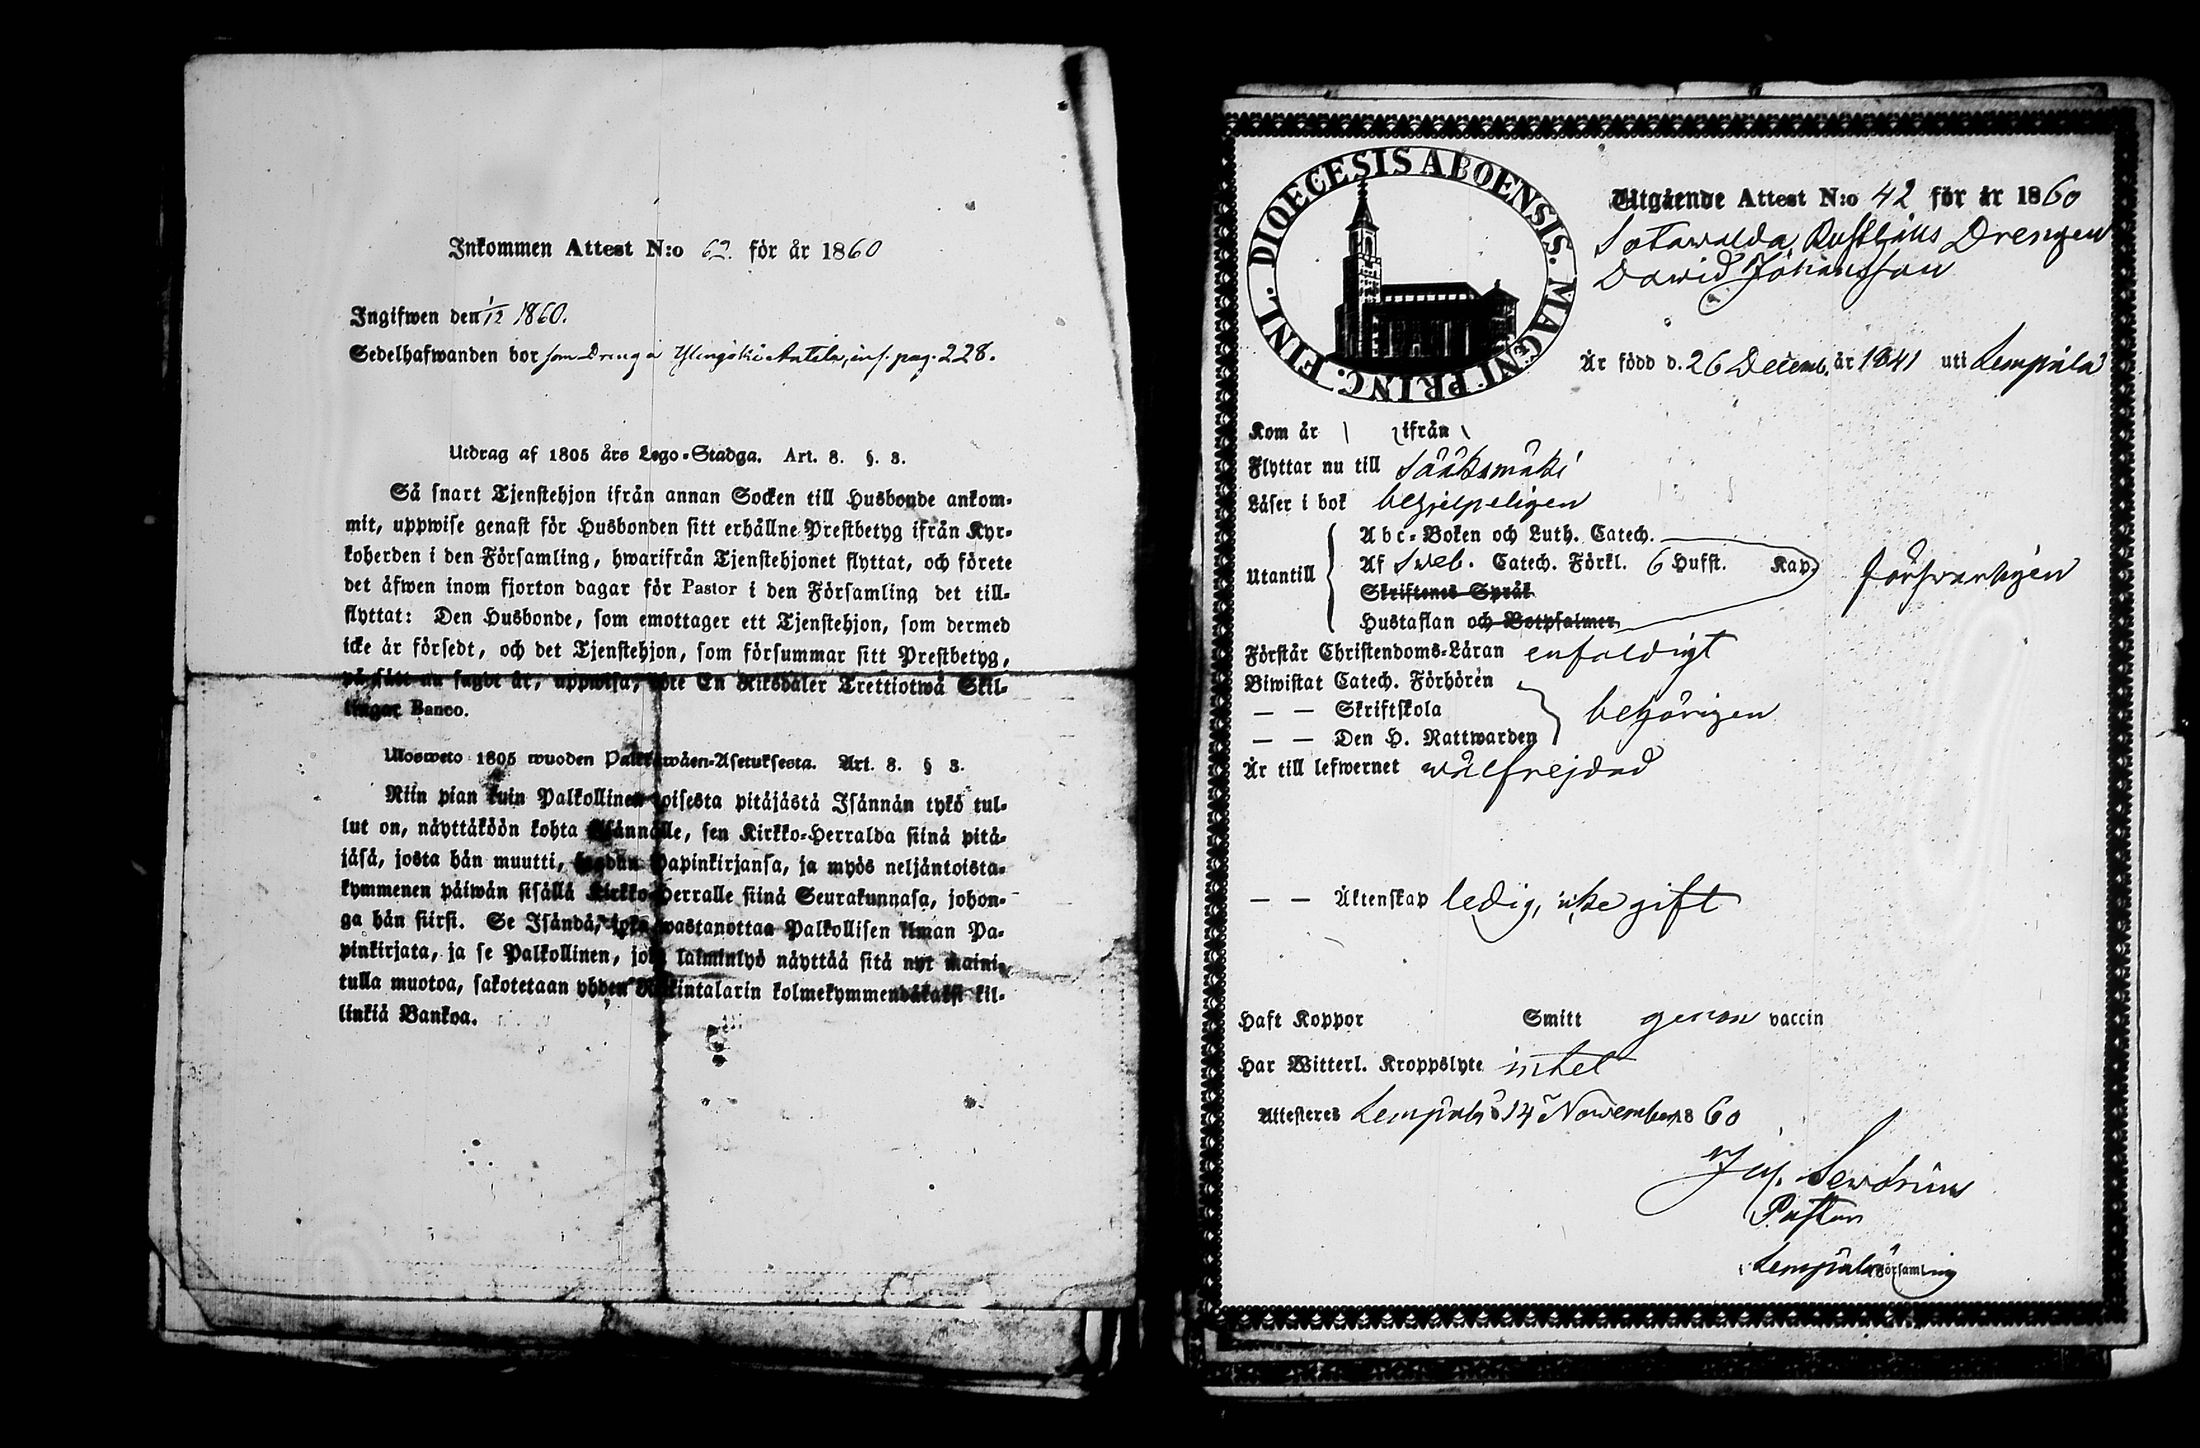 Inkommen Attest N:o 62. för år 1860
Ingifwen den 1/12 1860.
Sedelhafwanden bor som Dreng å Ylenjöki Anttila, inf. pag. 228.
Utdrag af 1805 års Lego-Stadga. Art. 8. §. 3.
Så snart Tjenstehjon ifrån annan Socken till Husbonde ankom-
mit, uppwise genast för Husbonden sitt erhållne Prestbetyg ifrån Kyr-
koherden i den Församling, hwarifrån Tjenstehjonet flyttat, och förete
det äfwen inom fjorton dagar för Pastor i den Församling det till-
flyttat: Den Husbonde, som emottager ett Tjenstehjon, som dermed
icke är försedt, och det Tjenstehjon, som försummar sitt Prestbetyg,
på sätt nu sagdt är, uppwisa, böte En Riksdaler Trettiotwå Skil-
lingar Banco.
Ulosweto 1805 wuoden Palkkawäen-Asetuksesta. Art. 8. § 3.
Niin pian kuin Palkollinen toisesta pitäjästä Isännän tykö tul-
lut on, näyttäköön kohta Isännälle, sen Kirkko-Herralda siinä pitä-
jäsä, josta hän muutti, saadun Papinkirjansa, ja myös neljäntoista-
kymmenen päiwän sisällä Kirkko-Herralle siinä Seurakunnasa, johon-
ga hän siirsi. Se Isändä, joka wastanottaa Palkollisen ilman Pa-
pinkirjata, ja se Palkollinen, joka laiminlyö näyttää sitä nyt maini-
tulla muotoa, sakotetaan yhden Riikintalarin kolmekymmendäkaksi kil-
linkiä Bankoa.
DIOECESIS ABOENSIS. MAGNI PRINC. FINL.
Utgående Attest N:o 42 för år 1860
Sotawalda Rusthålls Drengen
Dawid Johansson
Är född d. 26 Decemb. år 1841 uti Lempälä
Kom år ifrån
Flyttar nu till Sääksmäki
Läser i bok begripeligen
Utantill
Abc-Boken och Luth. Catech.
Af Sweb. Catech. Förkl. 6 Hufst. Kap.
Skriftenes Språk
Hustaflan och Botpsalmer
försvarligen
Förstår Christendoms-Läran enfaldigt
Biwistat Catech. Förhören
— — Skriftskola
— — Den H. Nattwarden
behörigen
Är till lefwernet wälfrejdad
— — Äktenskap ledig, icke gift
Haft Koppor Smitt genom vaccin
Har Witterl. Kroppslyte intet
Attesteres Lempälä d 14 November 1860
Pastor
i Lempälä Församling